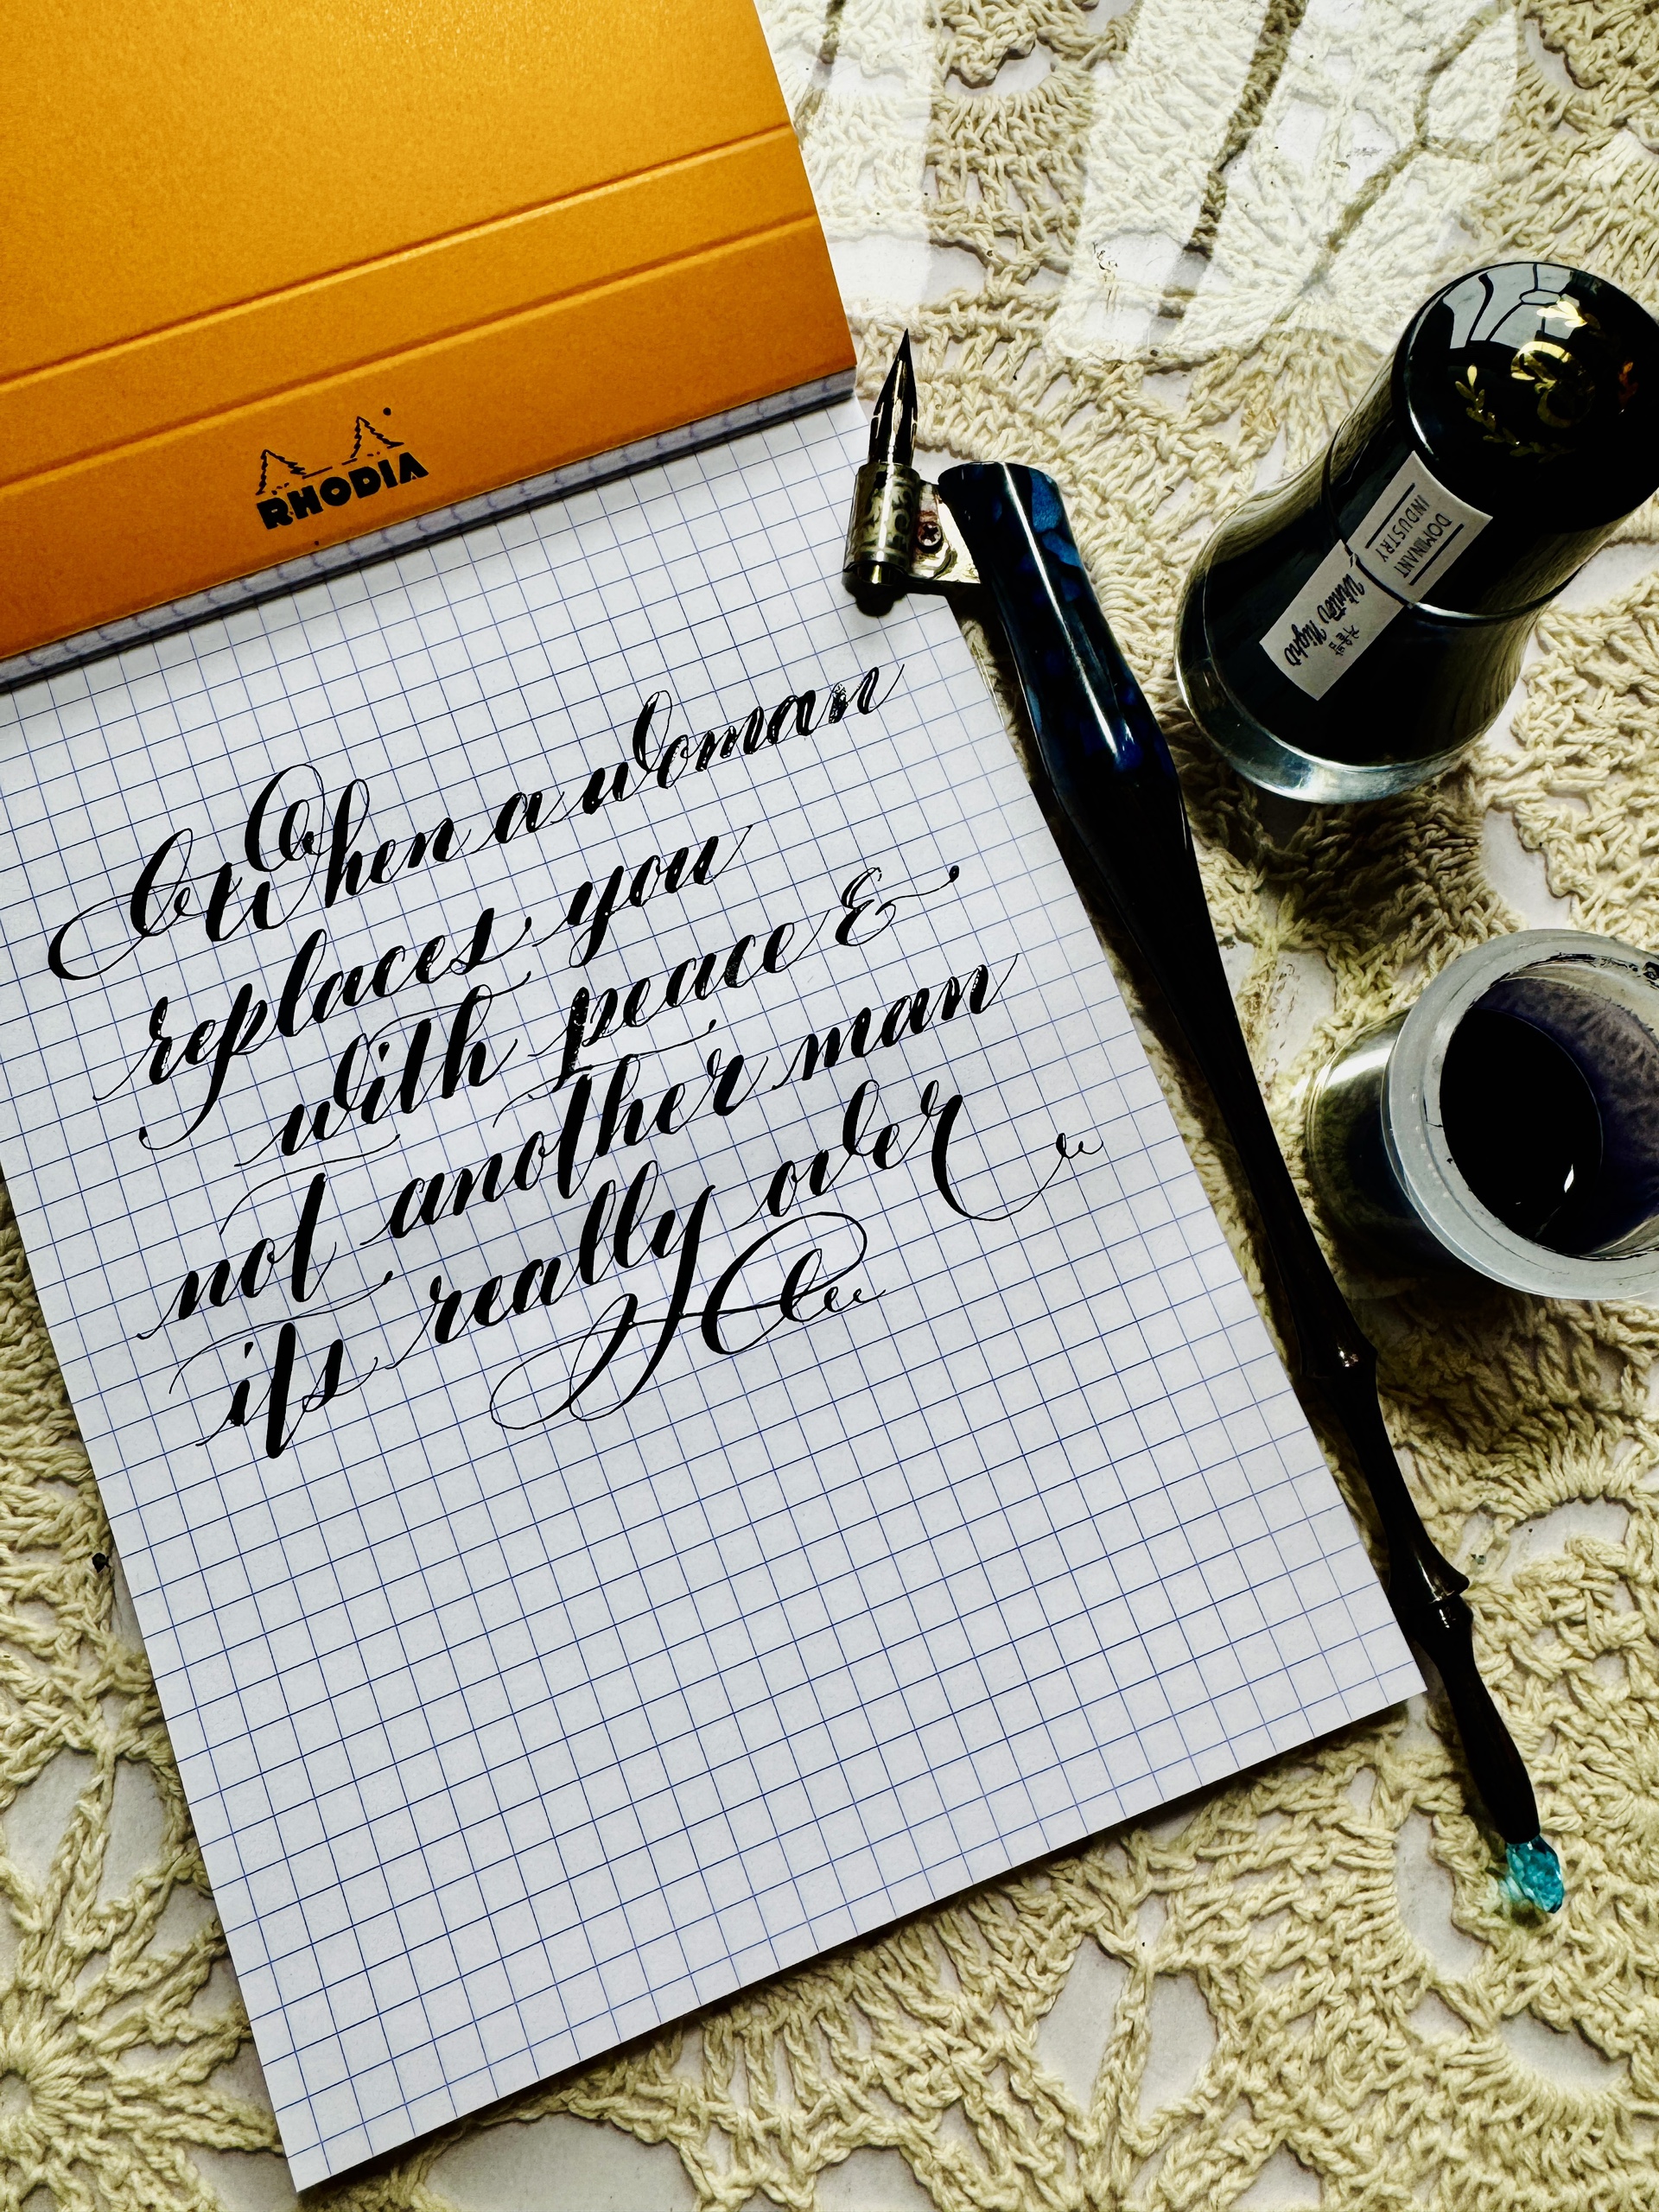 RHODIA
When a woman
replaces you
with peace &
not another man
its really over
DOMINANT
INDUSTRY
Winter Night
겨울밤